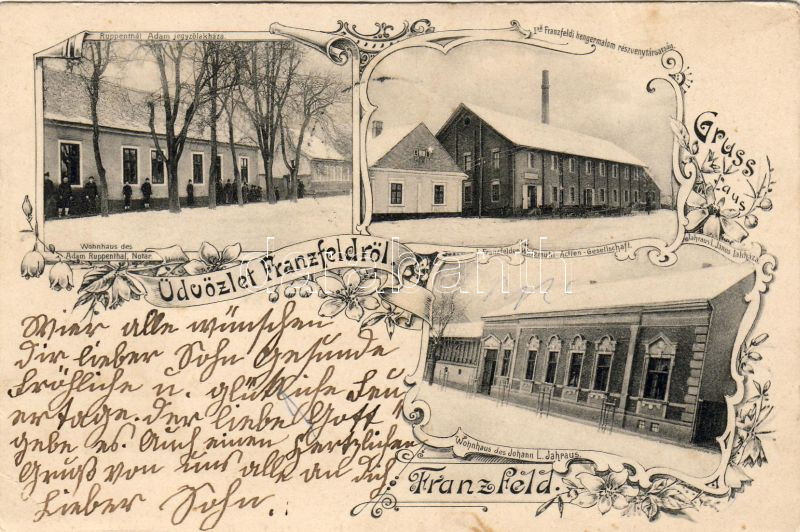 Ruppenthál Ádám jegyzőlakháza.
I ső Franzfeldi hengermalom részvenytársaság.
Gruss
aus
Wohnhaus des
Adam Ruppenthal, Notär.
Jahraus L. János Lakháza.
Franzfelder Actien-Gesellschaft.
Üdvözlet Franzfeldről
Wier alle wünschen
dir lieber Sohn Gesunde
Fröhliche u. glükliche Feu
ertage. der liebe Gott
gebe es. Auch einen Hertzlichen
Gruß von uns alle an dich
Lieber Sohn.
Wohnhaus des Johann L. Jahraus.
Franzfeld.
darabanth